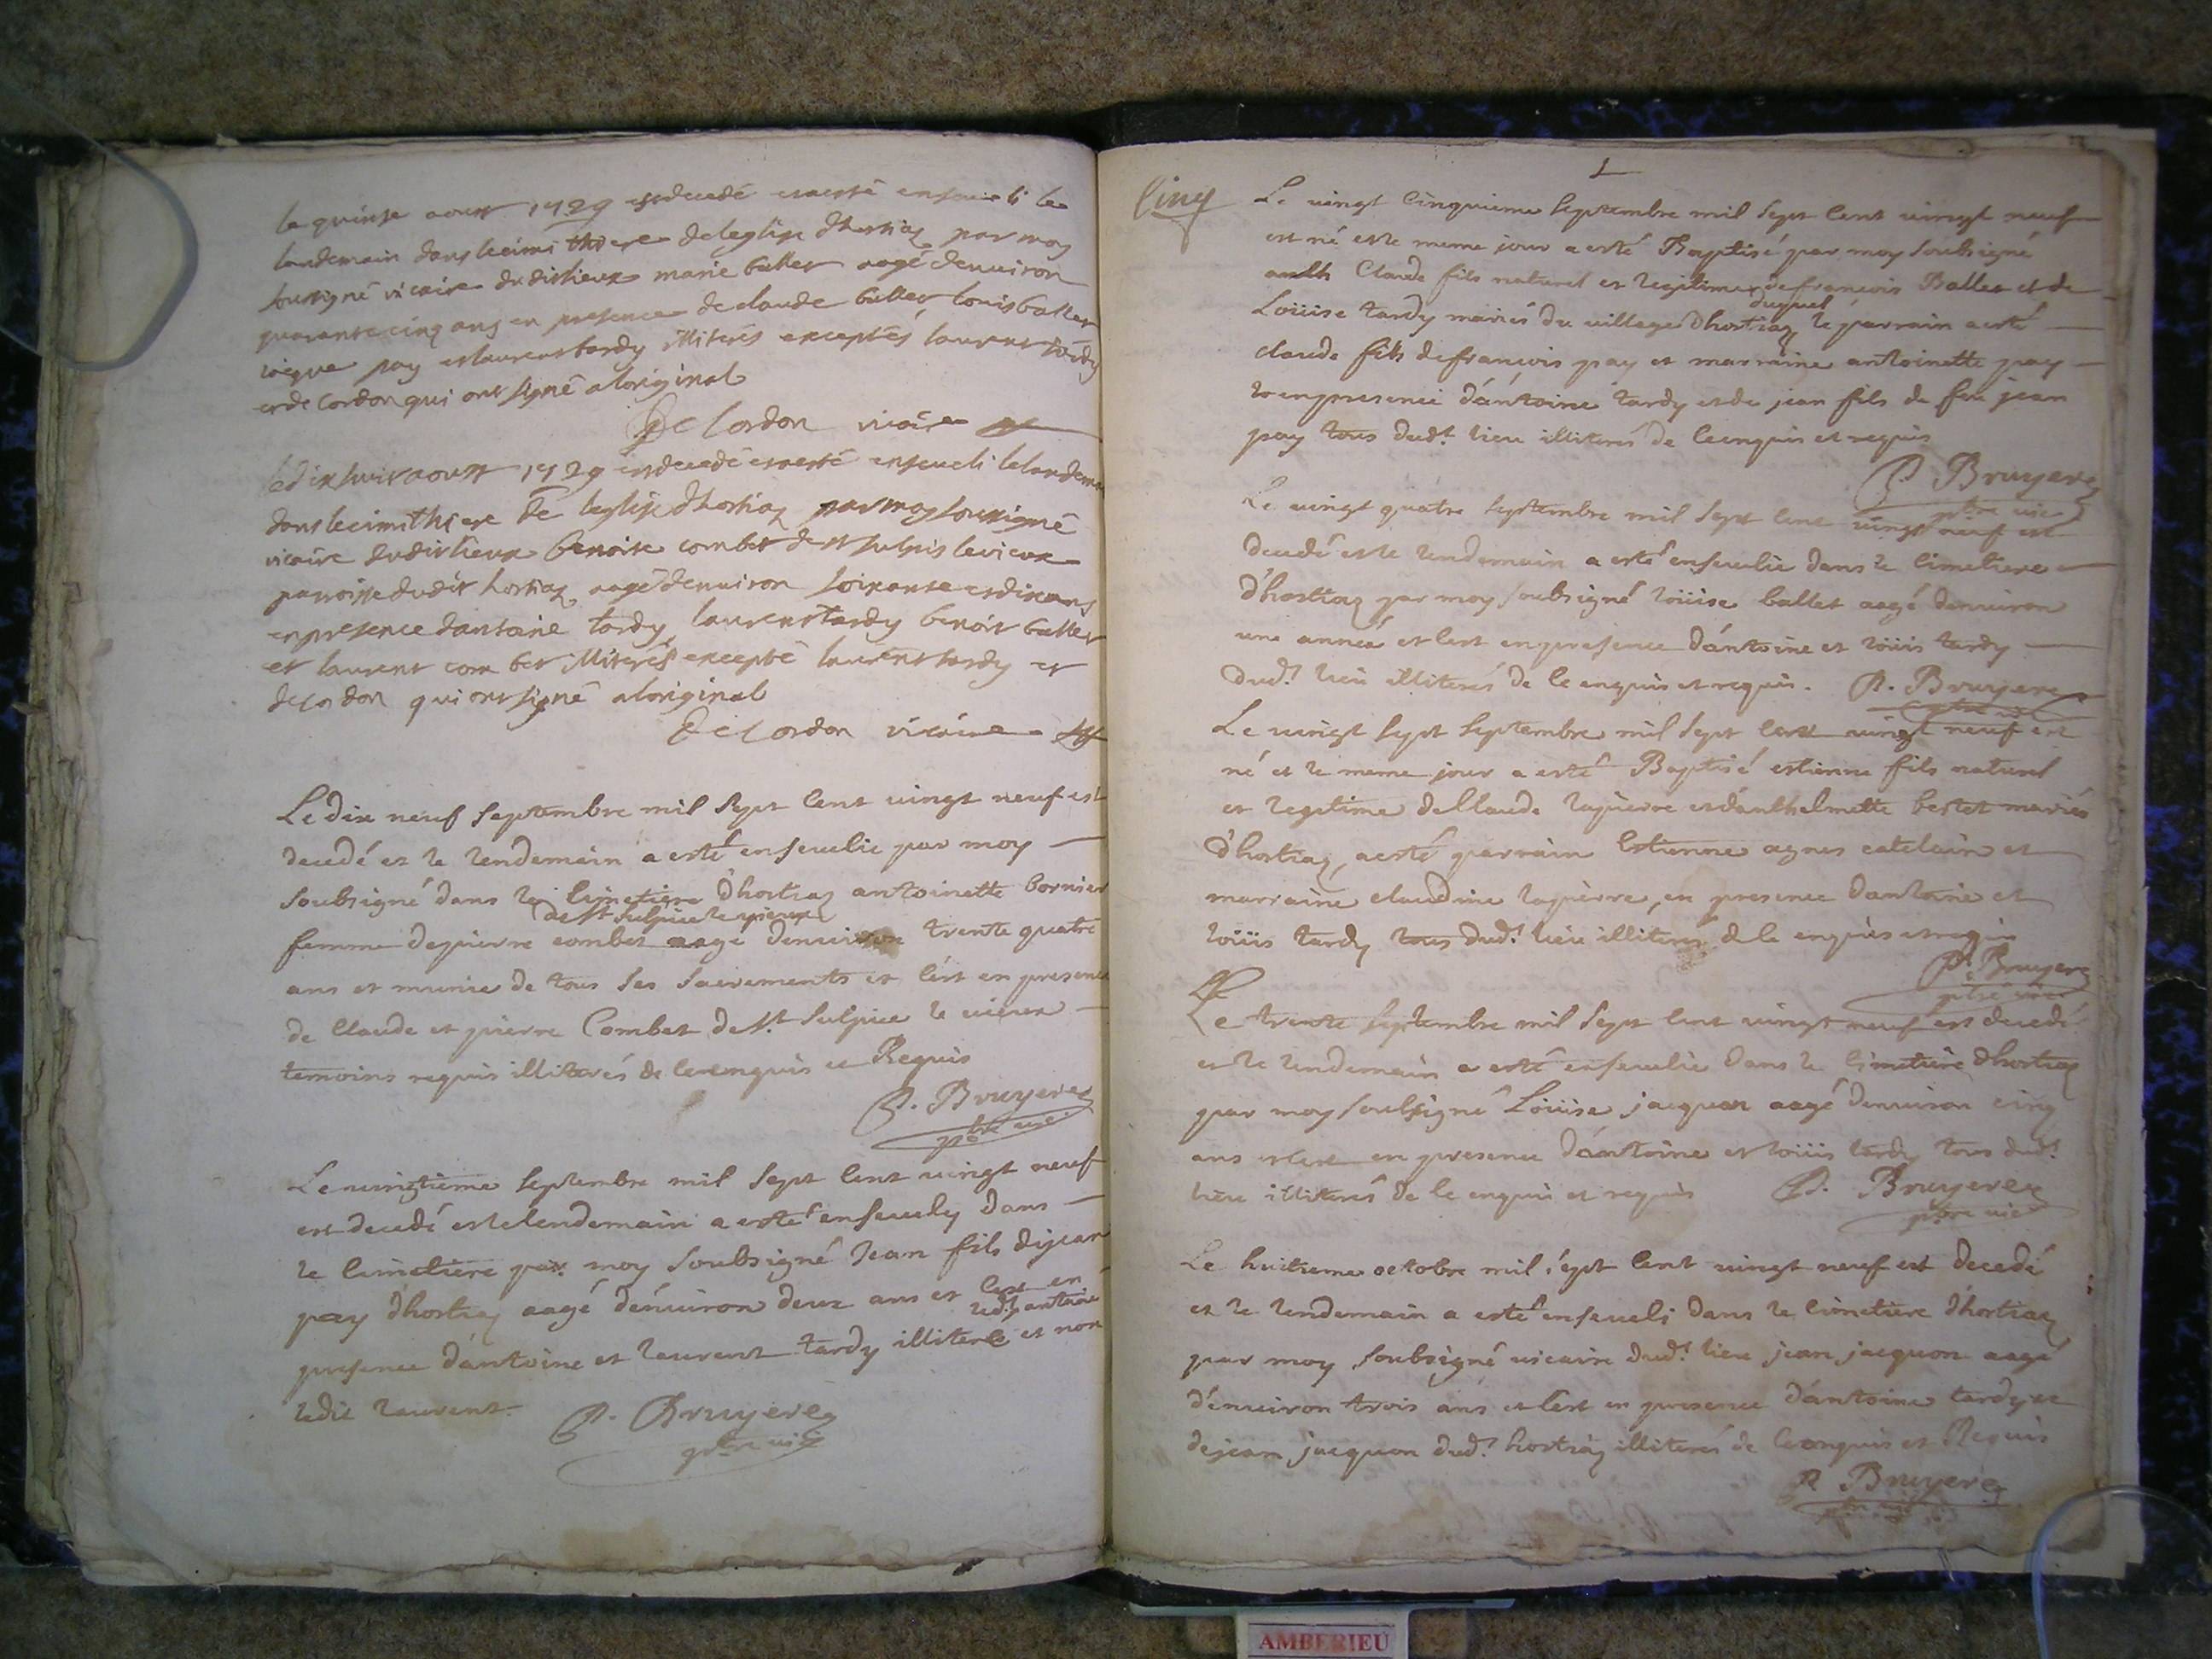 le quinse aoust 1729 est decedé et a esté enseveli le
landemain dans le cimithiere de leglise dhostiaz par moy
soussigné vicaire dudit lieux marie ballet aagé denviron
quarante cinq ans en presence de claude ballet, louis ballet
pay et laurens tardy illiterés exceptés laurent tardy
et de Cordon qui ont signé a loriginal
De Cordon vicaire
le dix huit aoust 1729 est decedé et a esté enseveli le landemain
dans le cimithiere de leglise dhostiaz par moy soussigné
vicaire dudit lieux benoite combet de st sulpis le vieux
parroisse dudit hostiaz aagé denviron soixante et dix ans
en presence dantoine tardy laurens tardy benoit ballet
et laurent combet illiterés excepté laurent tardy et
de Cordon qui ont signé a loriginal
De Cordon vicaire
Le dix neuf septembre mil sept cent vingt neuf est
decedé et le lendemain a esté ensevelie par moy
soubsigné dans le cimetiere d'hostiaz antoinette bornier
de st sulpice le vieux
femme de pierre combet aagé denviron trente quatre
ans et munie de tous ses sacrements et c'est en presence
de Claude et pierre Combet de st sulpice le vieux
temoins requis illiterés de ce enquis et Requis
P. Bruyere
pbre vic
Le vingtieme septembre mil sept cent vingt neuf
est decedé et le lendemain a esté ensevely dans
le cimetiere par moy soubsigné Jean fils de jean
pay d'hostiaz aagé d'environ deux ans et c'est en
led.t antoine
presence d'antoine et laurent tardy illiteré et non
ledit laurent.
P. Bruyere
pbre vic
Cinq
Le vingt cinquieme septembre mil sept cent vingt neuf
est né et le meme jour a esté Baptisé par moy soubsigné
Claude fils naturel et legitime de francois Ballet et de
duquel
Loüise tardy mariés du village d'hostiaz le parrain a esté
claude fils de francois pay et marraine antoinette pay
en presence d'antoine tardy et de jean fils de feu jean
pay tous dud.t lieu illiterés de ce enquis et requis
P. Bruyere
pbre vic
Le vingt quatre septembre mil sept cent vingt neuf est
decedé et le lendemain a esté ensevelie dans le cimetiere
d'hostiaz par moy soubsigné loüise ballet aagé denviron
une année et c'est en presence d'antoine et loüis tardy
dud.t lieu illiterés de ce enquis et requis. P. Bruyere
pbre vic
Le vingt sept septembre mil sept cent vingt neuf est
né et le meme jour a esté Baptisé estienne fils naturel
et legitime de Claude lapierre et d'anthelmette bertet mariés
d'hostiaz, a esté parrain Estienne agnes catelain et
marraine claudine lapierre, en presence d'antoine et
loüis tardy tous dud.t lieu illiterés de ce enquis et requis
P. Bruyere
pbre vic
Le trente septembre mil sept cent vingt neuf est decedé
et le lendemain a esté ensevelie dans le cimetiere d'hostiaz
par moy soubsigné Loüise jacquon aagé denviron cinq
ans et c'est en presence d'antoine et loüis tardy tous dud.t
lieu illiterés de ce enquis et requis P. Bruyere
pbre vic
Le huitieme octobre mil sept cent vingt neuf est decedé
et le lendemain a esté enseveli dans le cimetiere d'hostiaz
par moy soubsigné vicaire dud.t lieu jean jacquon aagé
d'environ trois ans et c'est en presence d'antoine tardy et
de jean jacquon dud.t hostiaz illiterés de ce enquis et Requis
P. Bruyere
AMBERIEU